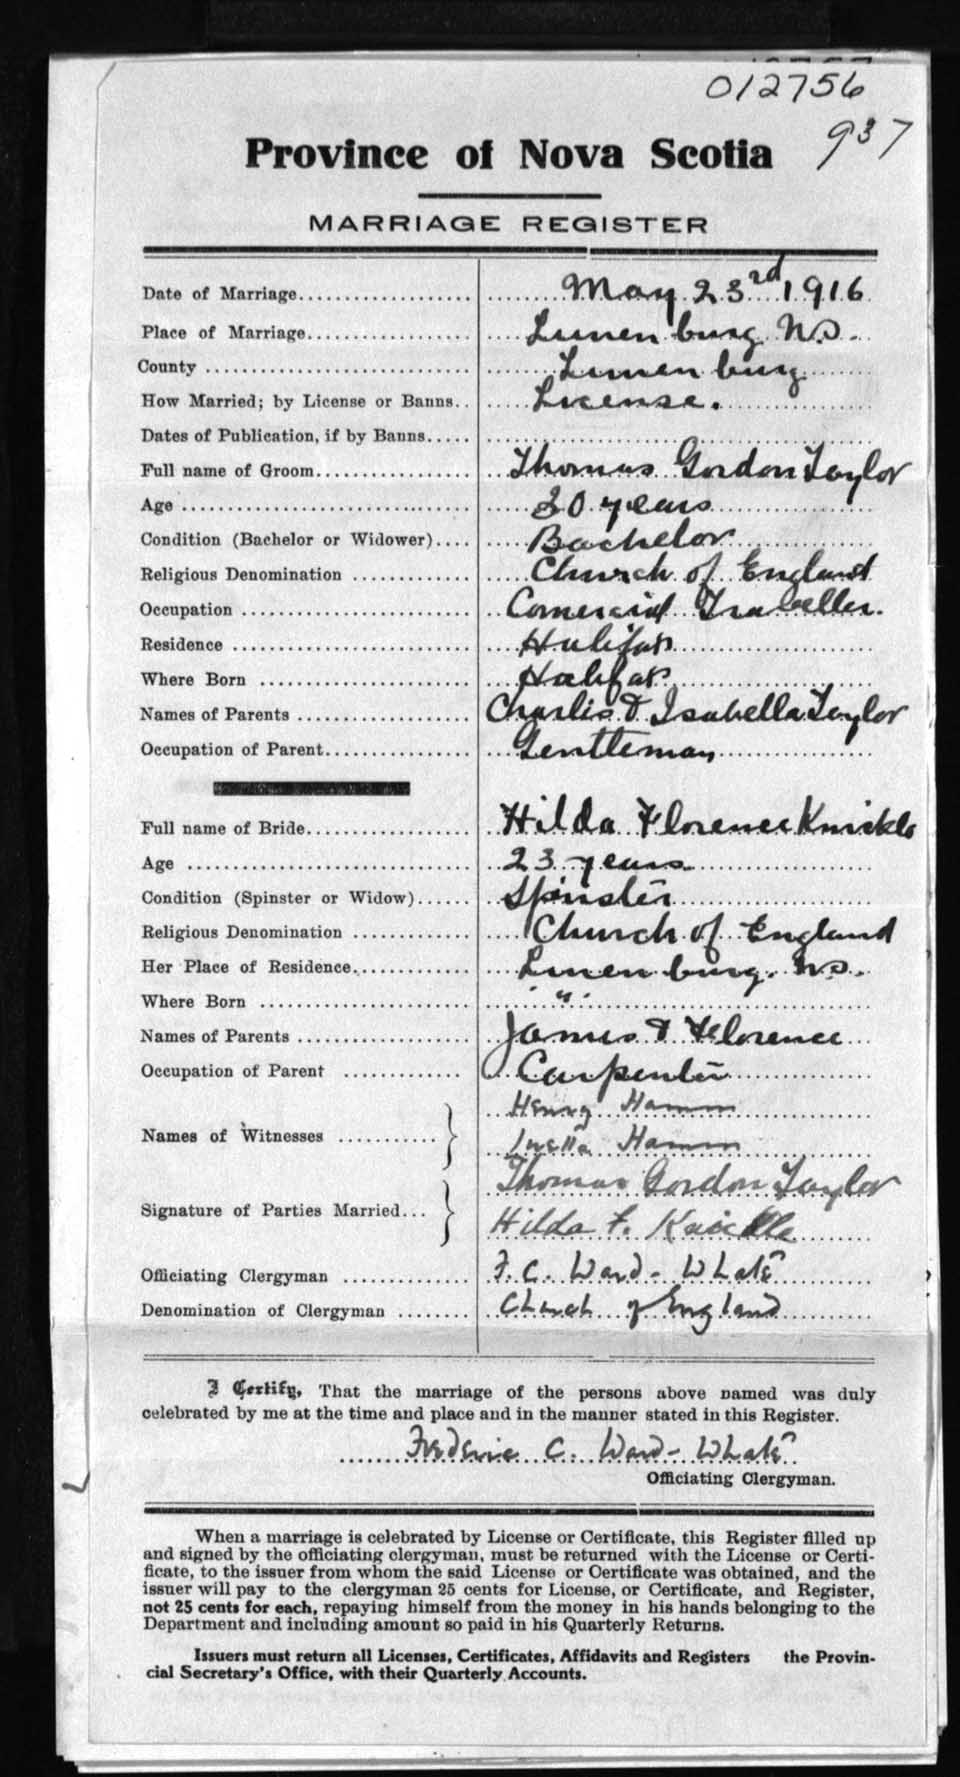 012756
937
Province of Nova Scotia
MARRIAGE REGISTER
Date of Marriage.................... May 23rd 1916
Place of Marriage.................... Lunenburg N.S.
County .............................. Lunenburg
How Married; by License or Banns.. License.
Dates of Publication, if by Banns.....
Full name of Groom.................. Thomas Gordon Taylor
Age ................................. 30 years
Condition (Bachelor or Widower).... Bachelor
Religious Denomination ............. Church of England
Occupation .......................... Comercial Traveller.
Residence ........................... Halifax
Where Born ........................ Halifax
Names of Parents .................... Charlis & Isabella Taylor
Occupation of Parent................. Gentleman
Full name of Bride................... Hilda Florence Knickle
Age ................................ 23 years
Condition (Spinster or Widow)...... Spinster
Religious Denomination ............. Church of England
Her Place of Residence.............. Lunenburg. N.S.
Where Born ........................ "
Names of Parents .................... James & Florence
Occupation of Parent .............. Carpenter
Henry Hamm
Names of Witnesses ...........
Luetta Hamm
Thomas Gordon Taylor
Signature of Parties Married...
Hilda F. Knickle
Officiating Clergyman ............... F. C. Ward-Whate
Denomination of Clergyman ........ Church of England
I Certify, That the marriage of the persons above named was duly
celebrated by me at the time and place and in the manner stated in this Register.
Frederic C. Ward-Whate
Officiating Clergyman.
When a marriage is celebrated by License or Certificate, this Register filled up
and signed by the officiating clergyman, must be returned with the License or Certi-
ficate, to the issuer from whom the said License or Certificate was obtained, and the
issuer will pay to the clergyman 25 cents for License, or Certificate, and Register,
not 25 cents for each, repaying himself from the money in his hands belonging to the
Department and including amount so paid in his Quarterly Returns.
Issuers must return all Licenses, Certificates, Affidavits and Registers the Provin-
cial Secretary's Office, with their Quarterly Accounts.